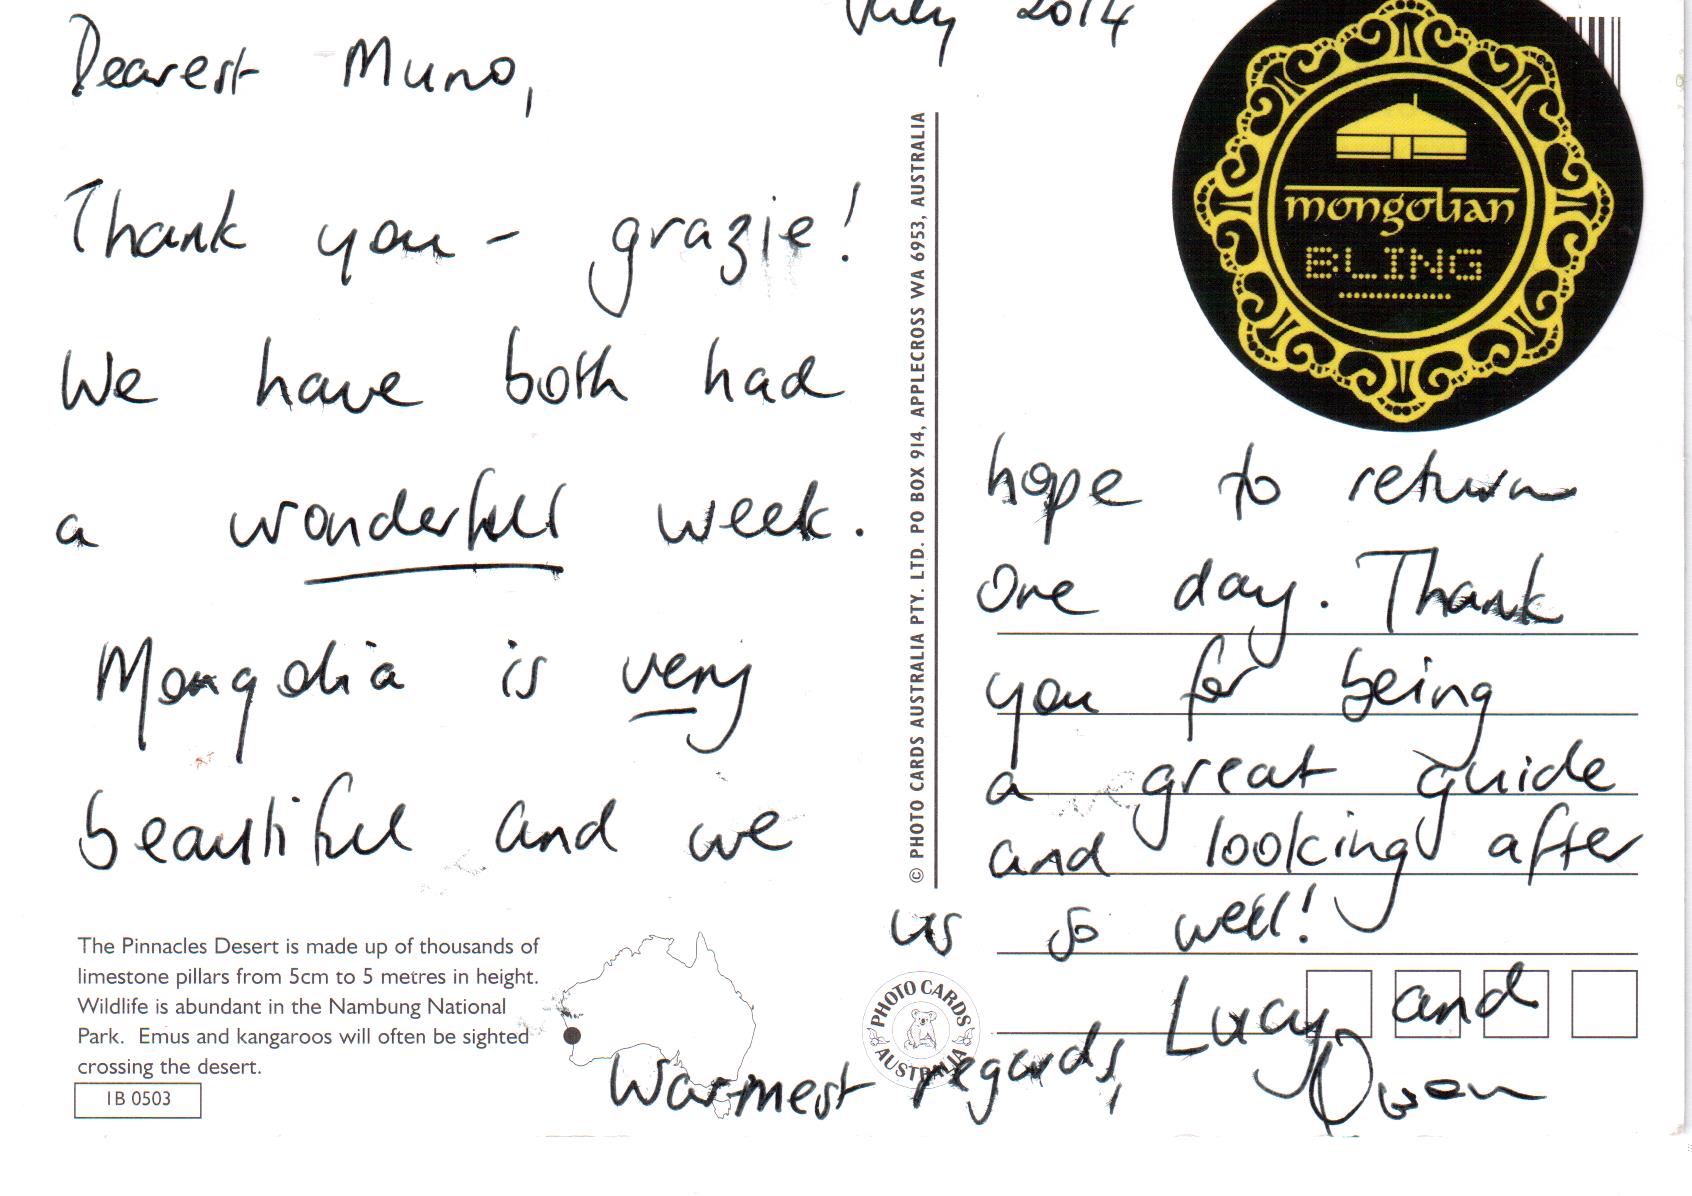 July 2014
Dearest Muno,
Thank you - grazie!
We have both had
a wonderful week.
Mongolia is very
beautiful and we
hope to return
one day. Thank
you for being
a great guide
and looking after
us so well!
Warmest regards,
Lucy and
Owen
mongolian
BLING
© PHOTO CARDS AUSTRALIA PTY. LTD. PO BOX 914, APPLECROSS WA 6953, AUSTRALIA
The Pinnacles Desert is made up of thousands of
limestone pillars from 5cm to 5 metres in height.
Wildlife is abundant in the Nambung National
Park. Emus and kangaroos will often be sighted
crossing the desert.
IB 0503
PHOTO CARDS
AUSTRALIA